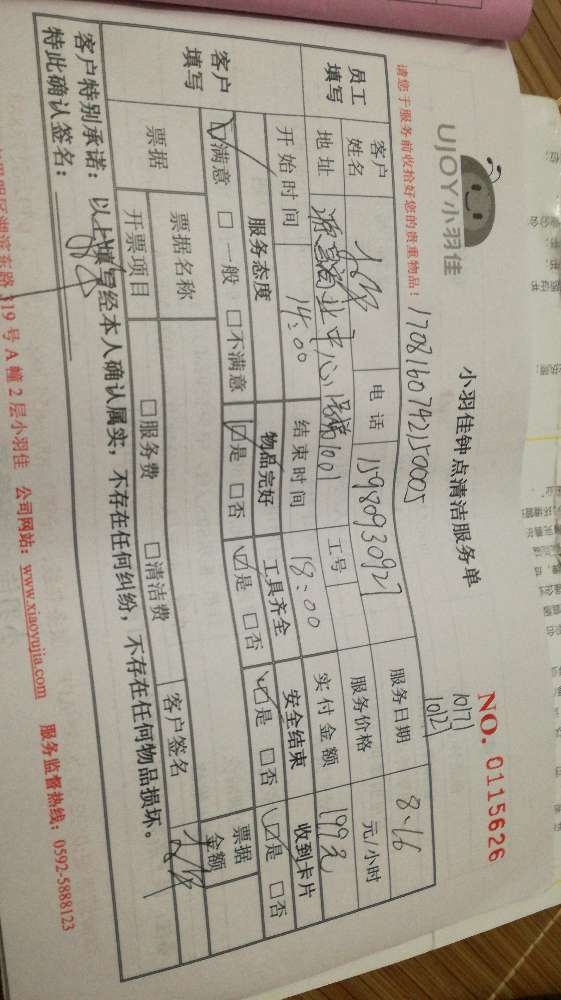 UJOY小羽佳
小羽佳钟点清洁服务单
NO. 0115626
请您于服务前收拾好您的贵重物品！
1708160742150005
员工填写
客户姓名
电话
15980930927
服务日期
8.16
地址
商业中心
1001
工号
服务价格
元/小时
开始时间
14:00
结束时间
18:00
实付金额
199元
客户填写
服务态度
物品完好
工具齐全
安全结束
收到卡片
☑满意 □一般 □不满意
☑是 □否
☑是 □否
☑是 □否
☑是 □否
票据
票据名称
票据金额
开票项目
□服务费 □清洁费
客户签名
客户特别承诺：以上填写经本人确认属实，不存在任何纠纷，不存在任何物品损坏。
特此确认签名：
东路319号A幢2层小羽佳 公司网站：www.xiaoyujia.com 服务监督热线：0592-5888123